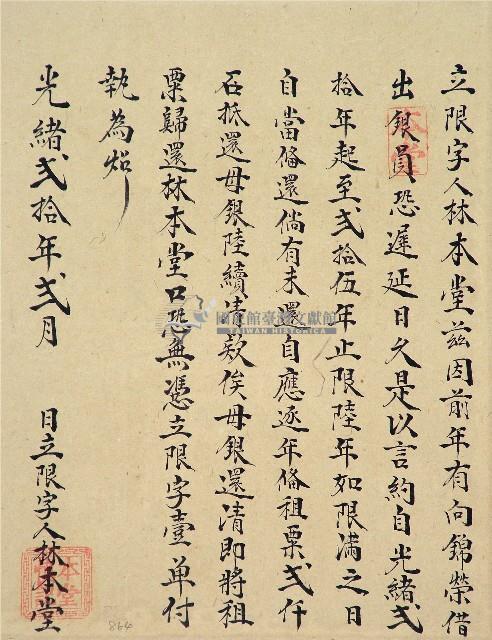 立限字人林本堂茲因前年有向錦榮借
出銀員恐遲延日久是以言約自光緒弍
拾年起至弍拾伍年止限陸年如限滿之日
自當俻還倘有未還自應逐年俻租粟弍仟
石抵還母銀陸續清款俟母銀還清即將租
粟歸還林本堂口恐無憑立限字壹单付
執為炤
光緒弍拾年弍月 日立限字人林本堂
國史館臺灣文獻館
TAIWAN HISTORICA
864